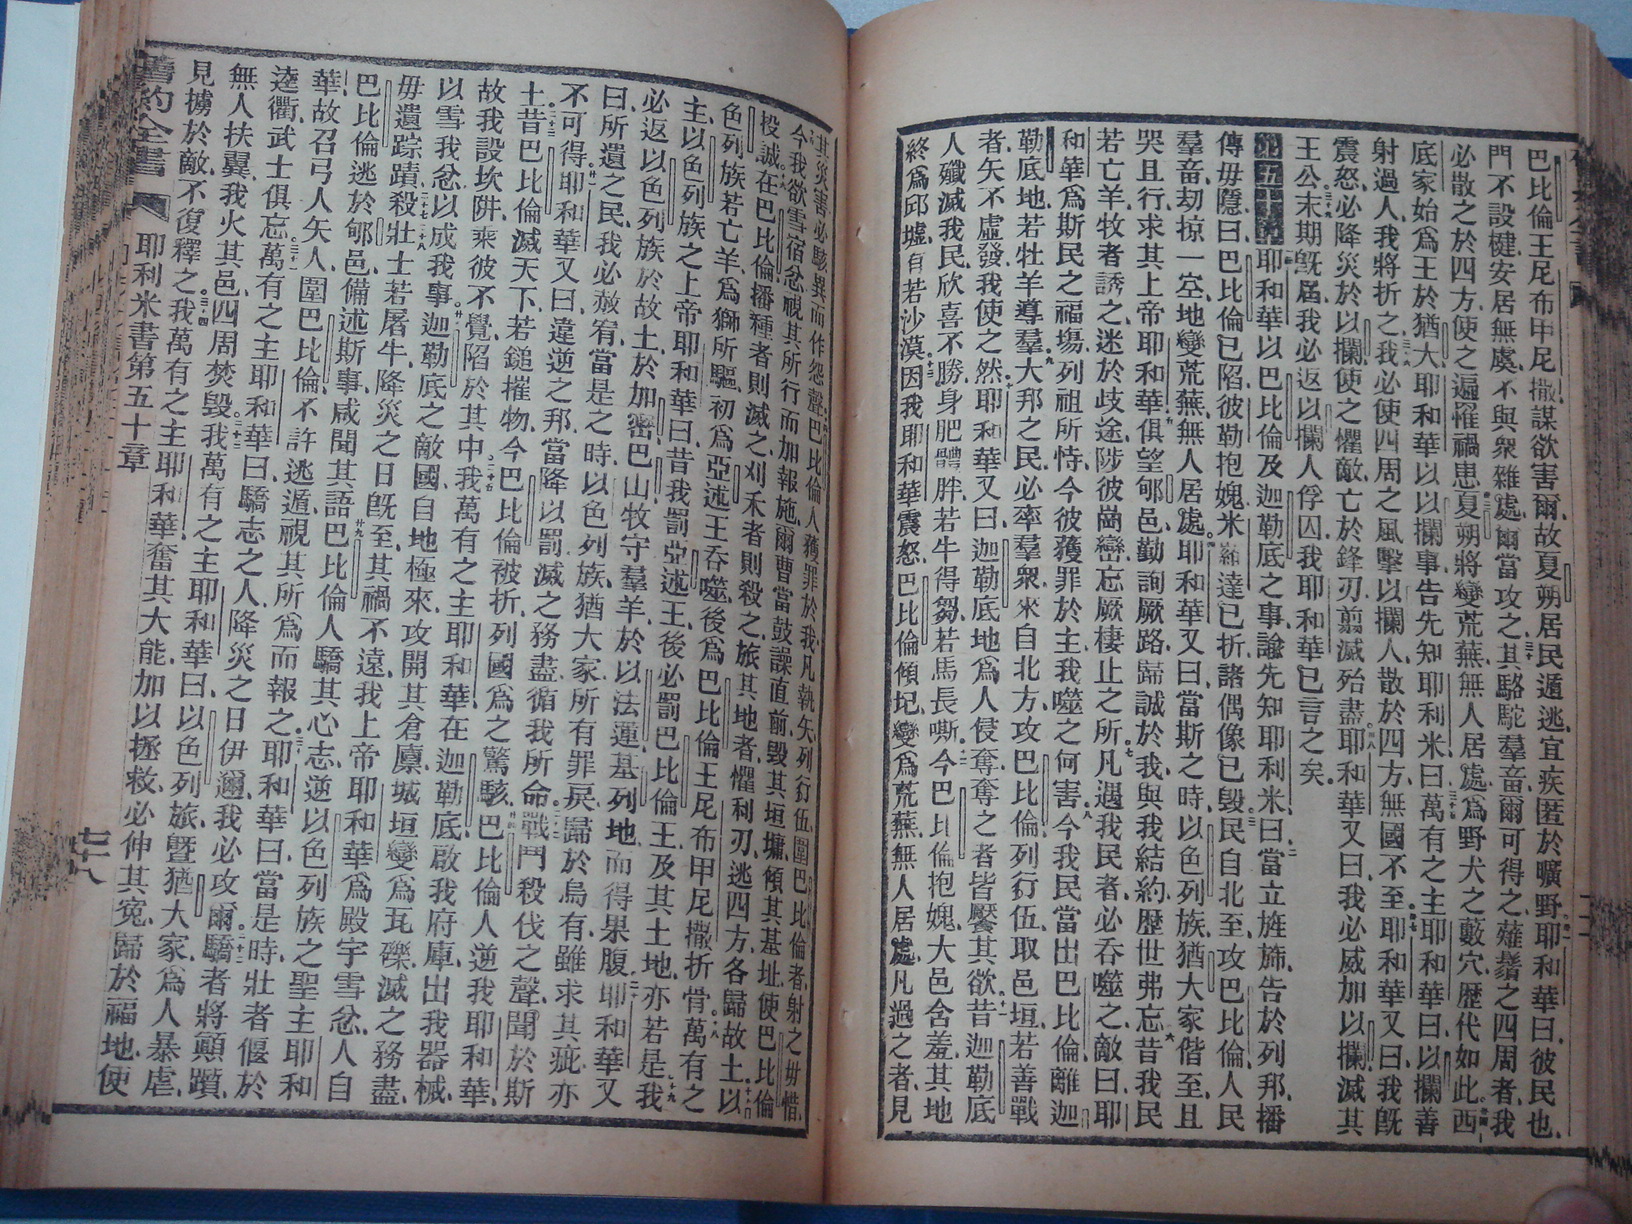 巴比倫王尼布甲尼撒謀欲害爾故夏朔居民遁逃宜疾匿於曠野耶和華曰彼民也
門不設楗安居無虞不與衆雜處爾當攻之其駱駝羣畜爾可得之薙鬚之四周者我
必散之於四方使之遍罹禍患夏朔將變荒蕪無人居處爲野犬之藪穴歷代如此西
底家始爲王於猶大耶和華以以攔事告先知耶利米曰萬有之主耶和華曰以攔善
射過人我將折之我必使四周之風擊以攔人散於四方無國不至耶和華又曰我旣
震怒必降災於以攔使之懼敵亡於鋒刃翦滅殆盡耶和華又曰我必威加以攔滅其
王公末期旣屆我必返以攔人俘囚我耶和華已言之矣
第五十章耶和華以巴比倫及迦勒底之事諭先知耶利米曰當立旌旆告於列邦播
傳毋隱曰巴比倫已陷彼勒抱媿米羅達已折諸偶像已毀民自北至攻巴比倫人民
羣畜劫掠一空地變荒蕪無人居處耶和華又曰當斯之時以色列族猶大家偕至且
哭且行求其上帝耶和華俱望郇邑勤詢厥路歸誠於我與我結約歷世弗忘昔我民
若亡羊牧者誘之迷於歧途陟彼崗巒忘厥棲止之所凡遇我民者必吞噬之敵曰耶
和華爲斯民之福塲列祖所恃今彼獲罪於主我噬之何害今我民當出巴比倫離迦
勒底地若牡羊導羣大邦之民必率羣衆來自北方攻巴比倫列行伍取邑垣若善戰
者矢不虛發我使之然耶和華又曰迦勒底地爲人侵奪奪之者皆饜其欲昔迦勒底
人殲滅我民欣喜不勝身肥體胖若牛得芻若馬長嘶今巴比倫抱媿大邑含羞其地
終爲邱墟有若沙漠因我耶和華震怒巴比倫傾圮變爲荒蕪無人居處凡過之者見
其災害必駭異而作怨聲巴比倫人獲罪於我凡執矢列行伍圍巴比倫者射之毋惜
今我欲雪宿忿視其所行而加報施爾曹當鼓譟直前毀其垣墉傾其基址使巴比倫
投誠在巴比倫播種者則滅之刈禾者則殺之旅其地者懼利刃逃四方各歸故土以
色列族若亡羊爲獅所驅初爲亞述王吞噬後爲巴比倫王尼布甲尼撒折骨萬有之
主以色列族之上帝耶和華曰昔我罰亞述王後必罰巴比倫王及其土地亦若是我
必返以色列族於故土於加密巴山牧守羣羊於以法蓮基列地而得果腹耶和華又
曰所遺之民我必赦宥當是之時以色列族猶大家所有罪戾歸於烏有雖求其疵亦
不可得耶和華又曰違逆之邦當降以罰滅之務盡循我所命戰鬥殺伐之聲聞於斯
土昔巴比倫滅天下若鎚摧物今巴比倫被折列國爲之驚駭巴比倫人逆我耶和華
故我設坎阱乘彼不覺陷於其中我萬有之主耶和華在迦勒底啟我府庫出我器械
以雪我忿以成我事迦勒底之敵國自地極來攻開其倉廩城垣變爲瓦礫滅之務盡
毋遺踪蹟殺壯士若屠牛降災之日旣至其禍不遠我上帝耶和華爲殿宇雪忿人自
巴比倫逃於郇邑備述斯事咸聞其語巴比倫人驕其心志逆以色列族之聖主耶和
華故召弓人矢人圍巴比倫不許逃遁視其所爲而報之耶和華曰當是時壯者偃於
逵衢武士俱忘萬有之主耶和華曰驕志之人降災之日伊邇我必攻爾驕者將顚躓
無人扶翼我火其邑四周焚毀我萬有之主耶和華曰以色列旅曁猶大家爲人暴虐
見擄於敵不復釋之我萬有之主耶和華奮其大能加以拯救必伸其寃歸於福地使
舊約全書 耶利米書第五十章 七十八